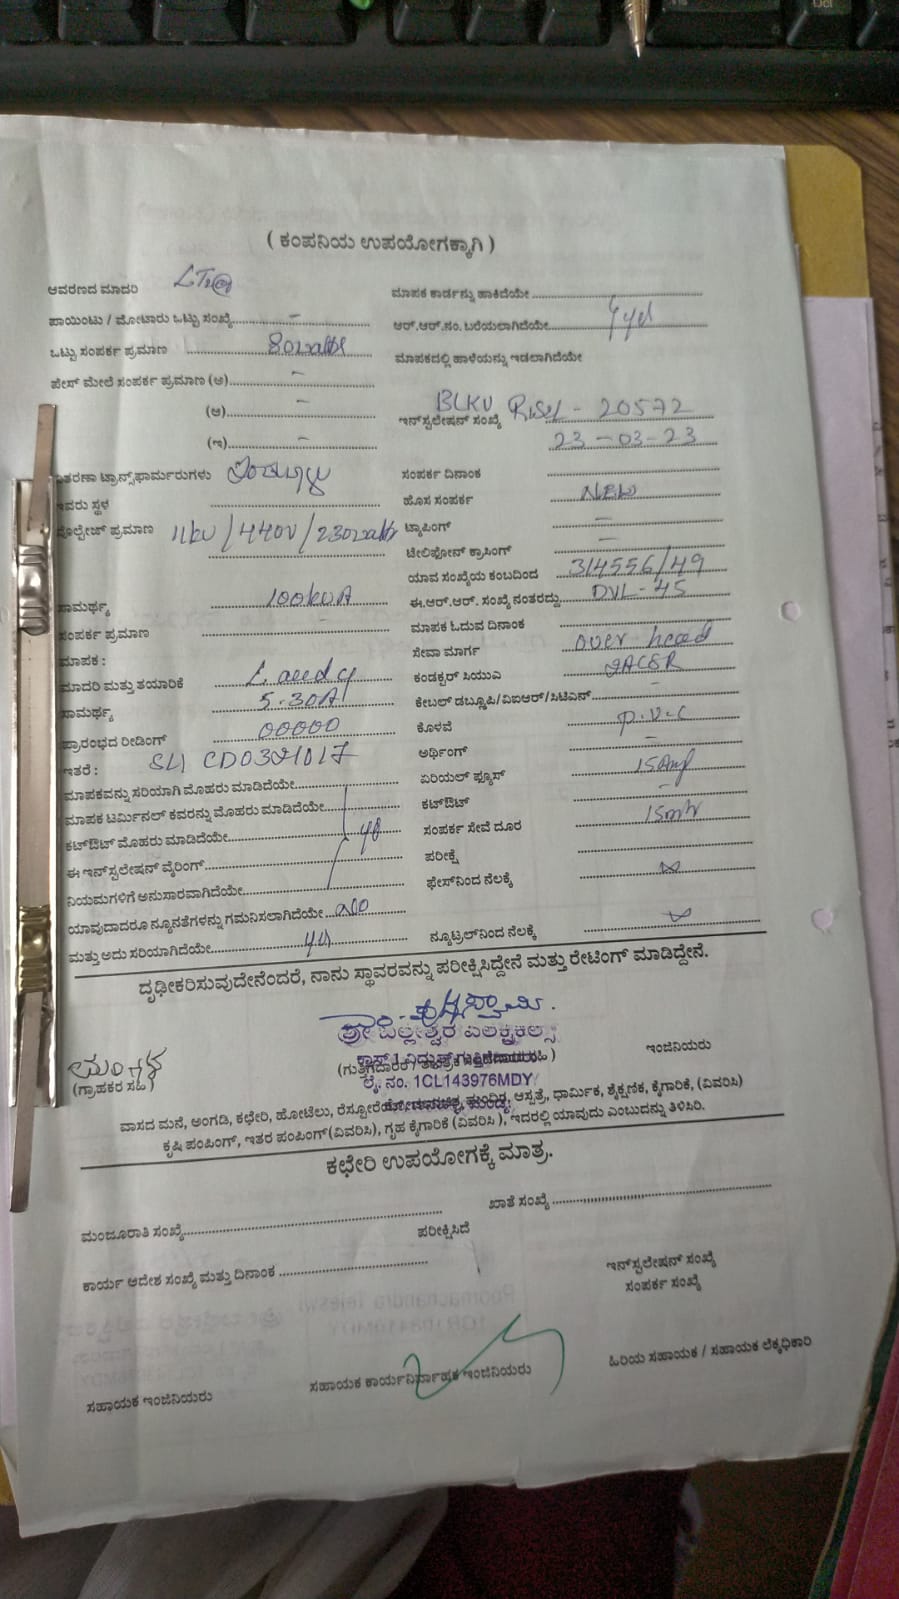 ( ಕಂಪನಿಯ ಉಪಯೋಗಕ್ಕಾಗಿ )
ಆವರಣದ ಮಾದರಿ
ಪಾಯಿಂಟು / ಮೋಟಾರು ಒಟ್ಟು ಸಂಖ್ಯೆ
ಒಟ್ಟು ಸಂಪರ್ಕ ಪ್ರಮಾಣ 80
ಫೇಸ್ ಮೇಲೆ ಸಂಪರ್ಕ ಪ್ರಮಾಣ (ಅ)
(ಆ)
(ಇ)
ಟ್ರಾನ್ಸ್‌ಫಾರ್ಮರುಗಳು
ಇವರು ಸ್ಥಳ
ವೋಲ್ಟೇಜ್ ಪ್ರಮಾಣ 11kv / 440v / 230
ಸಾಮರ್ಥ್ಯ 100kvA
ಸಂಪರ್ಕ ಪ್ರಮಾಣ
ಮಾಪಕ :
ಮಾದರಿ ಮತ್ತು ತಯಾರಿಕೆ L and G
ಸಾಮರ್ಥ್ಯ 5-30A
ಪ್ರಾರಂಭದ ರೀಡಿಂಗ್ 00000
ಇತರೆ :
ಮಾಪಕವನ್ನು ಸರಿಯಾಗಿ ಮೊಹರು ಮಾಡಿದೆಯೇ
ಮಾಪಕ ಟರ್ಮಿನಲ್ ಕವರನ್ನು ಮೊಹರು ಮಾಡಿದೆಯೇ
ಕಟ್‌ಔಟ್ ಮೊಹರು ಮಾಡಿದೆಯೇ
ಈ ಇನ್‌ಸ್ಟಲೇಷನ್ ವೈರಿಂಗ್
ನಿಯಮಗಳಿಗೆ ಅನುಸಾರವಾಗಿದೆಯೇ
ಯಾವುದಾದರೂ ನ್ಯೂನತೆಗಳನ್ನು ಗಮನಿಸಲಾಗಿದೆಯೇ no
ಮತ್ತು ಅದು ಸರಿಯಾಗಿದೆಯೇ
ಮಾಪಕ ಕಾರ್ಡನ್ನು ಹಾಕಿದೆಯೇ
ಆರ್.ಆರ್.ನಂ. ಬರೆಯಲಾಗಿದೆಯೇ
ಮಾಪಕದಲ್ಲಿ ಹಾಳೆಯನ್ನು ಇಡಲಾಗಿದೆಯೇ
ಇನ್‌ಸ್ಟಲೇಷನ್ ಸಂಖ್ಯೆ 20572
23-03-23
ಸಂಪರ್ಕ ದಿನಾಂಕ
ಹೊಸ ಸಂಪರ್ಕ NEW
ಟ್ಯಾಪಿಂಗ್
ಟೆಲಿಫೋನ್ ಕ್ರಾಸಿಂಗ್
ಯಾವ ಸಂಖ್ಯೆಯ ಕಂಬದಿಂದ 314556/49
ಈ.ಆರ್.ಆರ್. ಸಂಖ್ಯೆ ನಂತರದ್ದು DVL-45
ಮಾಪಕ ಓದುವ ದಿನಾಂಕ
ಸೇವಾ ಮಾರ್ಗ over head
ಕಂಡಕ್ಟರ್ ಸಿಯುಎ
ಕೇಬಲ್ ಡಬ್ಲೂಪಿ/ವಿಐಆರ್/ಸಿಟಿಎಸ್
ಕೊಳವೆ P.V.C
ಅರ್ಥಿಂಗ್
ಏರಿಯಲ್ ಫ್ಯೂಸ್ 15Amp
ಕಟ್‌ಔಟ್
ಸಂಪರ್ಕ ಸೇವೆ ದೂರ 15mtr
ಪರೀಕ್ಷೆ
ಫೇಸ್‌ನಿಂದ ನೆಲಕ್ಕೆ
ನ್ಯೂಟ್ರಲ್‌ನಿಂದ ನೆಲಕ್ಕೆ
ದೃಢೀಕರಿಸುವುದೇನೆಂದರೆ, ನಾನು ಸ್ಥಾವರವನ್ನು ಪರೀಕ್ಷಿಸಿದ್ದೇನೆ ಮತ್ತು ರೇಟಿಂಗ್ ಮಾಡಿದ್ದೇನೆ.
(ಗ್ರಾಹಕರ ಸಹಿ)
ಲೈ. ನಂ. 1CL143976MDY
ಇಂಜಿನಿಯರು
ವಾಸದ ಮನೆ, ಅಂಗಡಿ, ಕಛೇರಿ, ಹೋಟೆಲು, ಆಸ್ಪತ್ರೆ, ಧಾರ್ಮಿಕ, ಶೈಕ್ಷಣಿಕ, ಕೈಗಾರಿಕೆ, (ವಿವರಿಸಿ)
ಕೃಷಿ ಪಂಪಿಂಗ್, ಇತರ ಪಂಪಿಂಗ್(ವಿವರಿಸಿ), ಗೃಹ ಕೈಗಾರಿಕೆ (ವಿವರಿಸಿ ), ಇದರಲ್ಲಿ ಯಾವುದು ಎಂಬುದನ್ನು ತಿಳಿಸಿರಿ.
ಕಛೇರಿ ಉಪಯೋಗಕ್ಕೆ ಮಾತ್ರ.
ಮಂಜೂರಾತಿ ಸಂಖ್ಯೆ
ಖಾತೆ ಸಂಖ್ಯೆ
ಪರೀಕ್ಷಿಸಿದೆ
ಕಾರ್ಯ ಆದೇಶ ಸಂಖ್ಯೆ ಮತ್ತು ದಿನಾಂಕ
ಇನ್‌ಸ್ಟಲೇಷನ್ ಸಂಖ್ಯೆ
ಸಂಪರ್ಕ ಸಂಖ್ಯೆ
ಸಹಾಯಕ ಇಂಜಿನಿಯರು
ಸಹಾಯಕ ಕಾರ್ಯನಿರ್ವಾಹಕ ಇಂಜಿನಿಯರು
ಹಿರಿಯ ಸಹಾಯಕ / ಸಹಾಯಕ ಲೆಕ್ಕಧಿಕಾರಿ